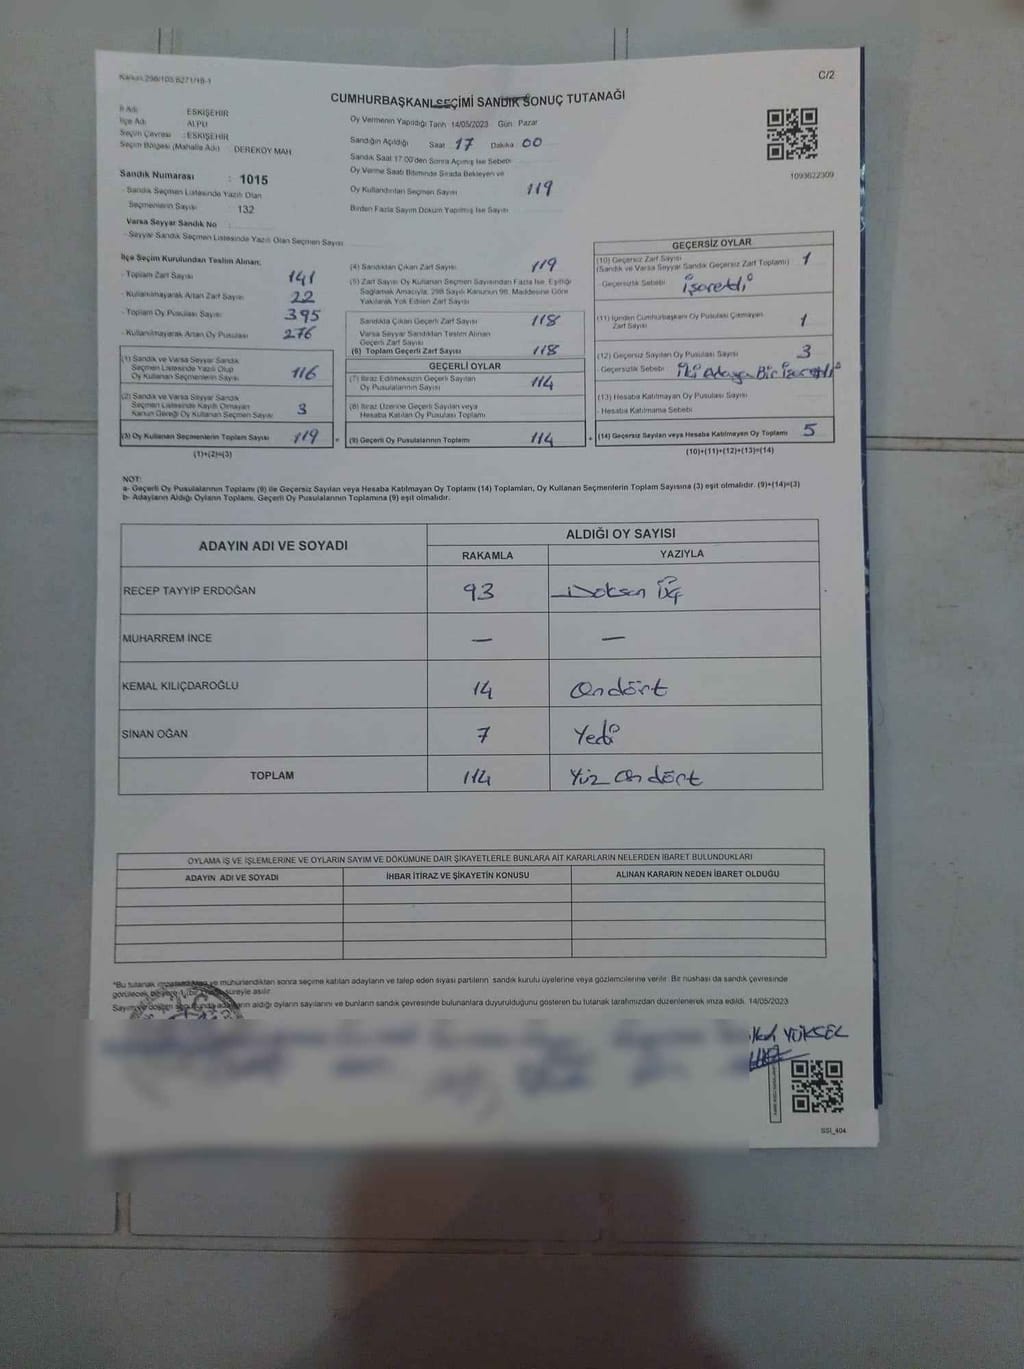 C/2
CUMHURBAŞKANI SEÇİMİ SANDIK SONUÇ TUTANAĞI
İl Adı : ESKİŞEHİR
İlçe Adı : ALPU
Seçim Çevresi : ESKİŞEHİR
Seçim Bölgesi (Mahalle Adı) : DEREKÖY MAH.
Sandık Numarası : 1015
Sandık Seçmen Listesinde Yazılı Olan
Seçmenlerin Sayısı : 132
Varsa Seyyar Sandık No :
- Seyyar Sandık Seçmen Listesinde Yazılı Olan Seçmen Sayısı
Oy Vermenin Yapıldığı Tarih 14/05/2023 Gün Pazar
Sandığın Açıldığı Saat 17 Dakika 00
Sandık Saat 17.00'den Sonra Açılmış İse Sebebi
Oy Verme Saati Bitiminde Sırada Bekleyen ve
Oy Kullandırılan Seçmen Sayısı 119
Birden Fazla Sayım Döküm Yapılmış İse Sayısı
1093622309
İlçe Seçim Kurulundan Teslim Alınan:
- Toplam Zarf Sayısı 141
- Kullanılmayarak Artan Zarf Sayısı 22
- Toplam Oy Pusulası Sayısı 395
- Kullanılmayarak Artan Oy Pusulası 276
(1) Sandık ve Varsa Seyyar Sandık
Seçmen Listesinde Yazılı Olup
Oy Kullanan Seçmenlerin Sayısı 116
(2) Sandık ve Varsa Seyyar Sandık
Seçmen Listesinde Kayıtlı Olmayan
Kanun Gereği Oy Kullanan Seçmen Sayısı 3
(3) Oy Kullanan Seçmenlerin Toplam Sayısı 119
(1)+(2)=(3)
(4) Sandıktan Çıkan Zarf Sayısı 119
(5) Zarf Sayısı Oy Kullanan Seçmen Sayısından Fazla İse, Eşitliği
Sağlamak Amacıyla, 298 Sayılı Kanunun 98. Maddesine Göre
Yakılarak Yok Edilen Zarf Sayısı
Sandıkta Çıkan Geçerli Zarf Sayısı 118
Varsa Seyyar Sandıktan Teslim Alınan
Geçerli Zarf Sayısı
(6) Toplam Geçerli Zarf Sayısı 118
GEÇERLİ OYLAR
(7) İtiraz Edilmeksizin Geçerli Sayılan
Oy Pusulalarının Sayısı 114
(8) İtiraz Üzerine Geçerli Sayılan veya
Hesaba Katılan Oy Pusulası Toplamı
(9) Geçerli Oy Pusulalarının Toplamı 114
GEÇERSİZ OYLAR
(10) Geçersiz Zarf Sayısı 1
(Sandık ve Varsa Seyyar Sandık Geçersiz Zarf Toplamı)
- Geçersizlik Sebebi işaretli
(11) İçinden Cumhurbaşkanı Oy Pusulası Çıkmayan
Zarf Sayısı 1
(12) Geçersiz Sayılan Oy Pusulası Sayısı 3
Geçersizlik Sebebi iki Adaya Bir işaretli
(13) Hesaba Katılmayan Oy Pusulası Sayısı
- Hesaba Katılmama Sebebi
(14) Geçersiz Sayılan veya Hesaba Katılmayan Oy Toplamı 5
(10)+(11)+(12)+(13)=(14)
NOT:
a- Geçerli Oy Pusulalarının Toplamı (9) ile Geçersiz Sayılan veya Hesaba Katılmayan Oy Toplamı (14) Toplamları, Oy Kullanan Seçmenlerin Toplam Sayısına (3) eşit olmalıdır. (9)+(14)=(3)
b- Adayların Aldığı Oyların Toplamı, Geçerli Oy Pusulalarının Toplamına (9) eşit olmalıdır.
ADAYIN ADI VE SOYADI
ALDIĞI OY SAYISI
RAKAMLA YAZIYLA
RECEP TAYYIP ERDOĞAN 93 Doksan Üç
MUHARREM İNCE — —
KEMAL KILIÇDAROĞLU 14 Ondört
SİNAN OĞAN 7 Yedi
TOPLAM 114 Yüz on dört
OYLAMA İŞ VE İŞLEMLERİNE VE OYLARIN SAYIM VE DÖKÜMÜNE DAİR ŞİKAYETLERLE BUNLARA AİT KARARLARIN NELERDEN İBARET BULUNDUKLARI
ADAYIN ADI VE SOYADI İHBAR İTİRAZ VE ŞİKAYETİN KONUSU ALINAN KARARIN NEDEN İBARET OLDUĞU
*Bu tutanak ve mühürlendikten sonra seçime katılan adayların ve talep eden siyasi partilerin sandık kurulu üyelerine veya gözlemcilerine verilir. Bir nüshası da sandık çevresinde
süreyle asılır.
aldığı oyların sayılarını ve bunların sandık çevresinde bulunanlara duyurulduğunu gösteren bu tutanak tarafımızdan düzenlenerek imza edildi. 14/05/2023
YÜKSEL
SSI_404